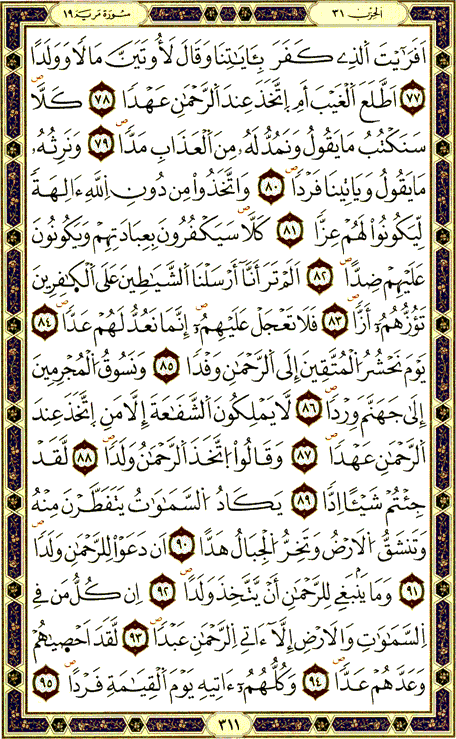 الحزب ٣١
سورة مريم ١٩
اَفَرَٰٓيْتَ اَ۬لذِے كَفَرَ بِـَٔايَٰتِنَا وَقَالَ لَأُوتَيَنَّ مَالاٗ وَوَلَداً
٧٧ اَطَّلَعَ اَ۬لْغَيْبَ أَمِ اِ۪تَّخَذَ عِندَ اَ۬لرَّحْمَٰنِ عَهْداٗ ٧٨ كَلَّا
سَنَكْتُبُ مَا يَقُولُ وَنَمُدُّ لَهُۥ مِنَ اَ۬لْعَذَابِ مَدّاٗ ٧٩ وَنَرِثُهُۥ
مَا يَقُولُ وَيَاتِينَا فَرْداٗ ٨٠ وَاتَّخَذُواْ مِن دُونِ اِ۬للَّهِ ءَالِهَةٗ
لِّيَكُونُواْ لَهُمْ عِزّاٗ ٨١ كَلَّا سَيَكْفُرُونَ بِعِبَادَتِهِمْ وَيَكُونُونَ
عَلَيْهِمْ ضِدّاً ٨٢ اَلَمْ تَرَ أَنَّآ أَرْسَلْنَا اَ۬لشَّيَٰطِينَ عَلَى اَ۬لْكٰ۪فِرِينَ
تَؤُزُّهُمُۥٓ أَزّاٗ ٨٣ فَلَا تَعْجَلْ عَلَيْهِمُۥٓ إِنَّمَا نَعُدُّ لَهُمْ عَدّاٗ ٨٤
يَوْمَ نَحْشُرُ اُ۬لْمُتَّقِينَ إِلَى اَ۬لرَّحْمَٰنِ وَفْداٗ ٨٥ وَنَسُوقُ اُ۬لْمُجْرِمِينَ
إِلَىٰ جَهَنَّمَ وِرْداٗ ٨٦ لَّا يَمْلِكُونَ اَ۬لشَّفَٰعَةَ إِلَّا مَنِ اِ۪تَّخَذَ عِندَ
اَ۬لرَّحْمَٰنِ عَهْداٗ ٨٧ وَقَالُواْ اُ۪تَّخَذَ اَ۬لرَّحْمَٰنُ وَلَداٗ ٨٨ لَّقَدْ
جِئْتُمْ شَيْـٔاً اِدّاٗ ٨٩ يَكَادُ اُ۬لسَّمَٰوَٰتُ يَتَفَطَّرْنَ مِنْهُ
وَتَنشَقُّ اُ۬لَارْضُ وَتَخِرُّ اُ۬لْجِبَالُ هَدّاً ٩٠ اَن دَعَوْاْ لِلرَّحْمَٰنِ وَلَداٗ
٩١ وَمَا يَنۢبَغِے لِلرَّحْمَٰنِ أَنْ يَّتَّخِذَ وَلَداً ٩٢ اِن كُلُّ مَن فِے
اِ۬لسَّمَٰوَٰتِ وَالَارْضِ إِلَّآ ءَاتِے اِ۬لرَّحْمَٰنِ عَبْداٗ ٩٣ لَّقَدَ اَحْص۪يٰهُمْ
وَعَدَّهُمْ عَدّاٗ ٩٤ وَكُلُّهُمُۥٓ ءَاتِيهِ يَوْمَ اَ۬لْقِيَٰمَةِ فَرْداً ٩٥
٣١١